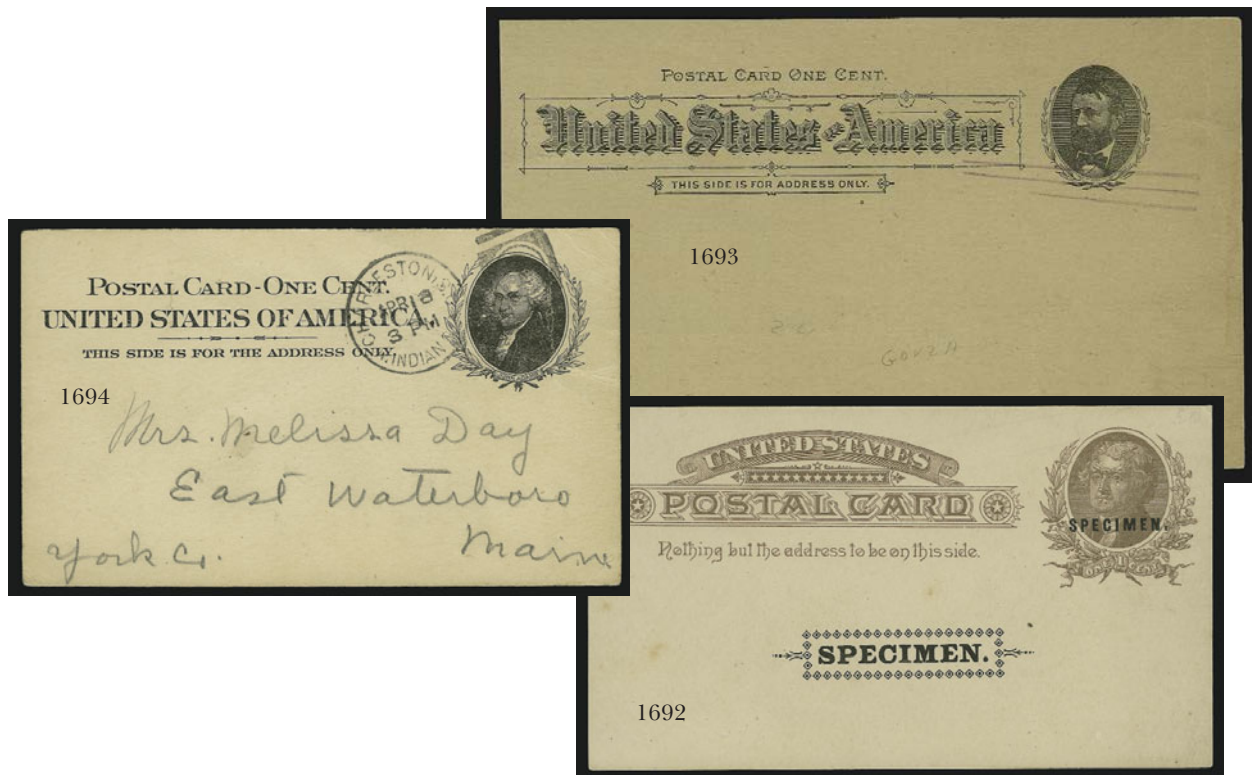 POSTAL CARD ONE CENT.
United States of America
THIS SIDE IS FOR ADDRESS ONLY.
1693
GOVZA
POSTAL CARD - ONE CENT.
UNITED STATES OF AMERICA.
THIS SIDE IS FOR THE ADDRESS ONLY.
CHARLESTON, S.C.
APR 8
8 PM
1694
Mrs. Melissa Day
East Waterboro
York Co.
Maine
UNITED STATES
POSTAL CARD
Nothing but the address to be on this side.
SPECIMEN.
ONE CENT
SPECIMEN.
1692